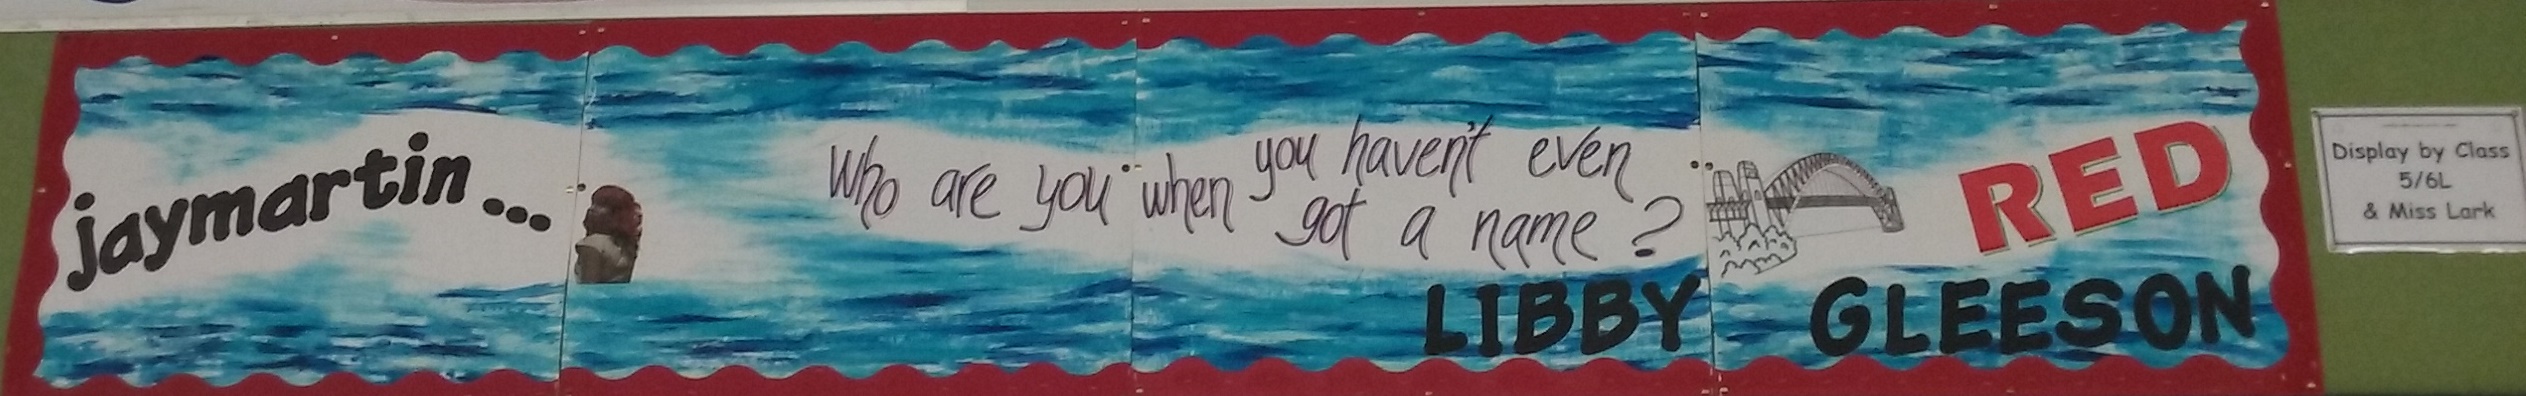 jaymartin...
Who are you when you haven't even
got a name?
RED
LIBBY GLEESON
Display by Class
5/6L
& Miss Lark